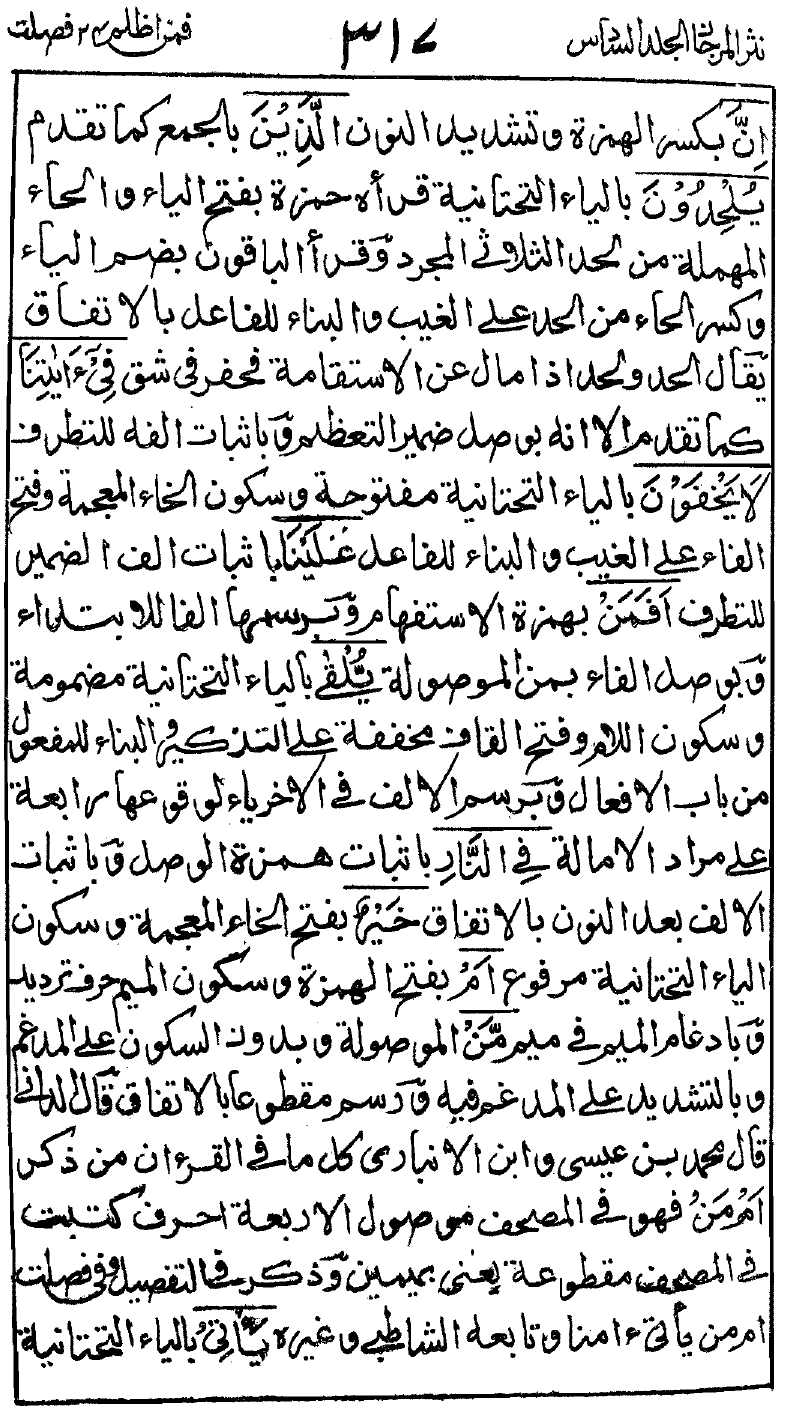 نثر المرجان المجلد السادس ٣١٧ فمن اظلم ٢٤ فصلت
اِنَّ بكسر الهمزة وتشديد النون الَّذِيْنَ بالجمع كما تقدم
يُلْحِدُوْنَ بالياء التحتانية قرأه حمزة بفتح الياء والحاء
المهملة من لحد الثلاثي المجرد وقرأ الباقون بضم الياء
وكسر الحاء من الحد على الغيب والبناء للفاعل بالاتفاق
يقال الحد ولحد اذا مال عن الاستقامة فحفر في شق فِيْٓ ءَايٰتِنَا
كما تقدم الا انه بوصل ضمير التعظيم وباثبات الفه للتطرف
لَا يَخْفَوْنَ بالياء التحتانية مفتوحة وسكون الخاء المعجمة وفتح
الفاء على الغيب والبناء للفاعل عَلَيْنَا باثبات الف الضمير
للتطرف اَفَمَنْ بهمزة الاستفهام وبرسمها الفا للابتداء
وبوصل الفاء بمن الموصولة يُّلْقٰى بالياء التحتانية مضمومة
وسكون اللام وفتح القاف مخففة على التذكير والبناء للمفعول
من باب الافعال وبرسم الالف في الاخر ياء لوقوعها رابعة
على مراد الامالة فِي النَّارِ باثبات همزة الوصل وباثبات
الالف بعد النون بالاتفاق خَيْرٌ بفتح الخاء المعجمة وسكون
الياء التحتانية مرفوع اَمْ بفتح الهمزة وسكون الميم حرف ترديد
وبادغام الميم في ميم مَّنْ الموصولة وبدون السكون على المدغم
وبالتشديد على المدغم فيه ورسم مقطوعا بالاتفاق قال الداني
قال محمد بن عيسى وابن الانبارى كل ما في القرءان من ذكر
اَمْ مَنْ فهو في المصحف موصول الا اربعة احرف كتبت
في المصحف مقطوعة يعنى بميمين وذكر في التفصيل وفي فصلت
ام من يأتيء امنا وتابعه الشاطبي وغيره يَّأْتِيْ بالياء التحتانية